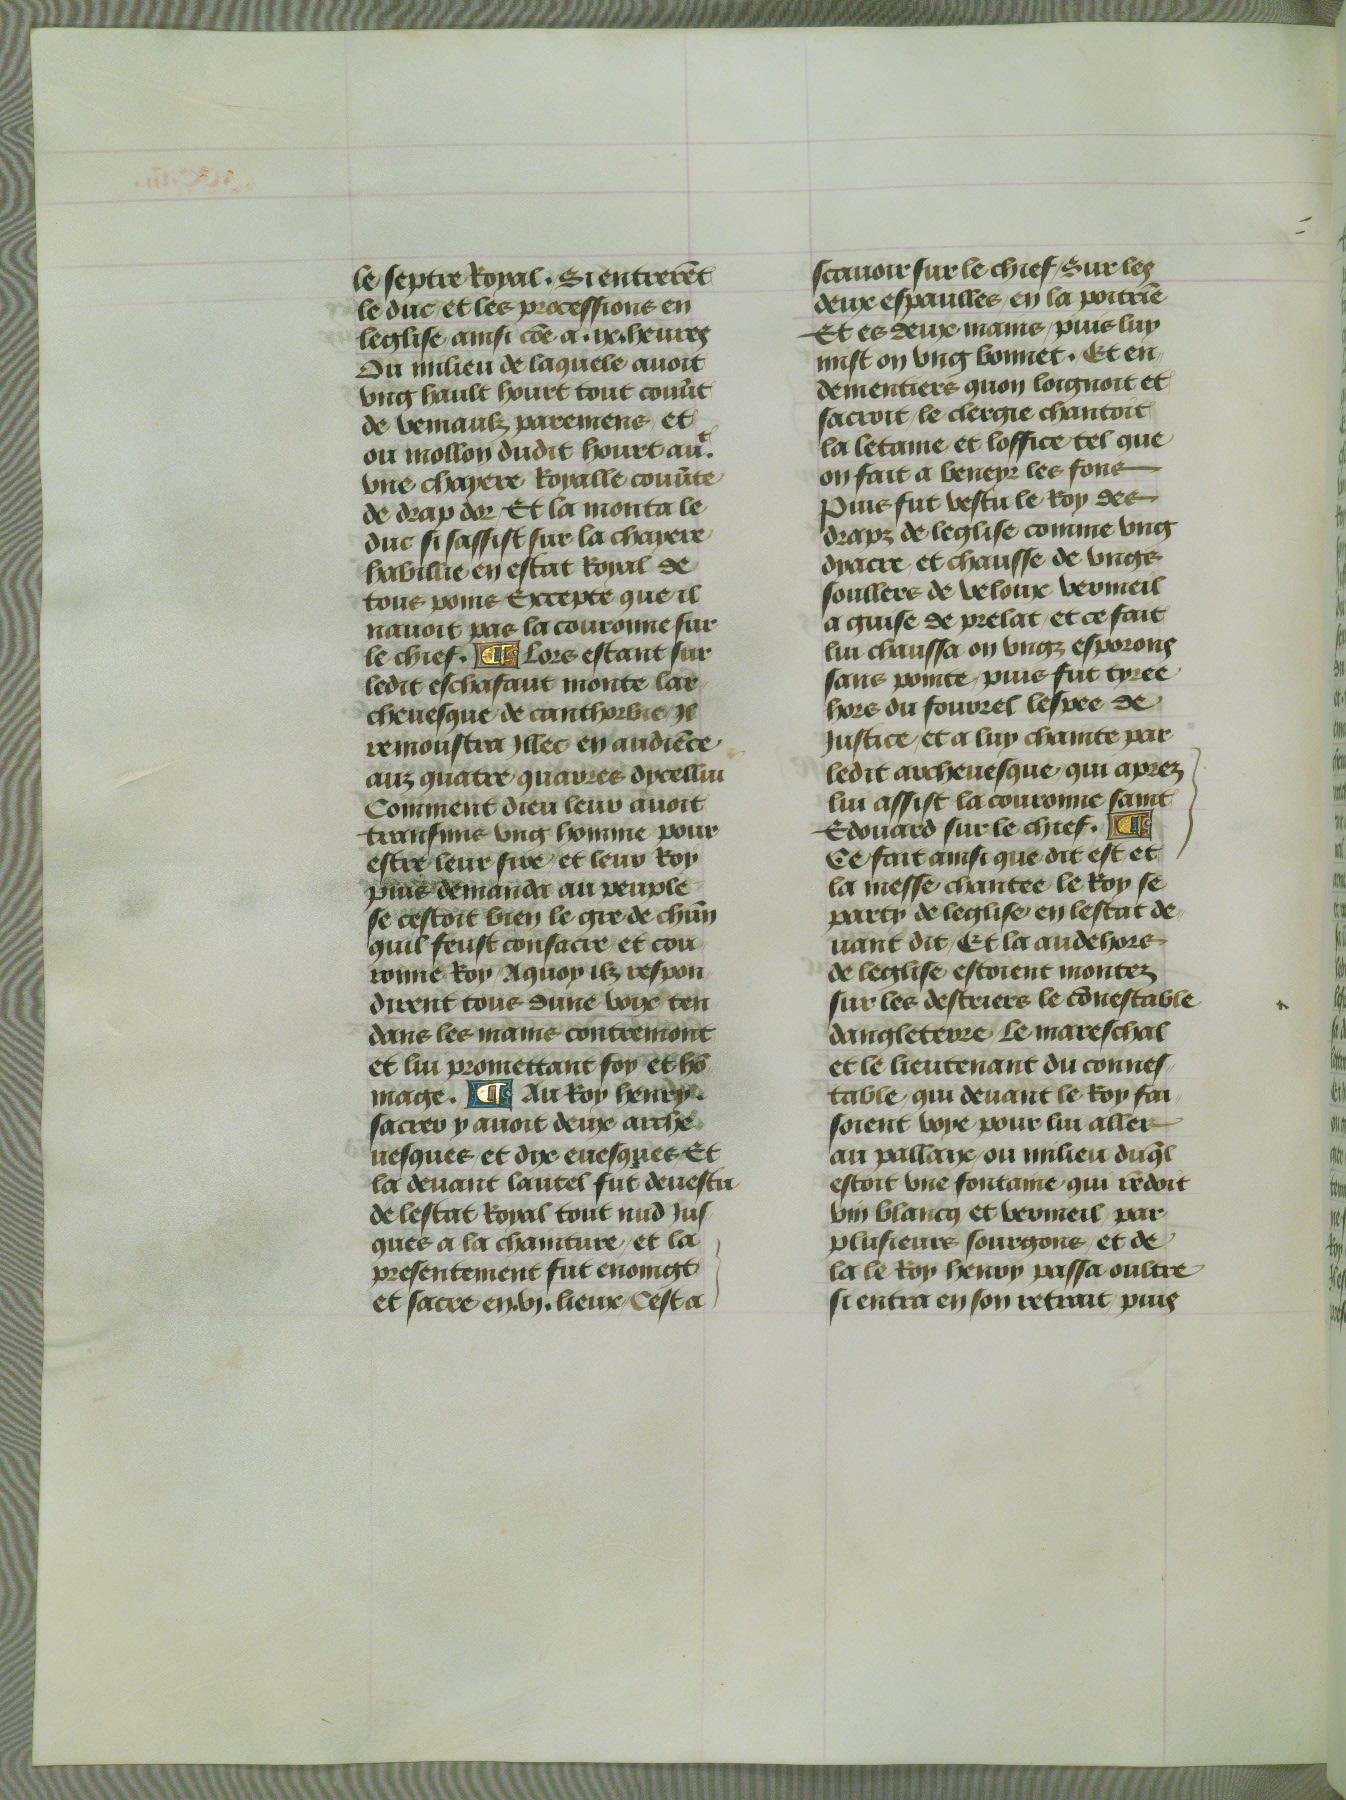 le septre Royal. Si entrerēt
le duc et les processions en
leglise ainsi cōe a .ix. heures
Ou milieu de laquele auoit
vng hault hourt tout couūt
de vermaulz paremens et
ou molloy dudit hourt auͭ.
vne chayere Royalle couūte
de drap dor Et la monta le
duc si sassist sur la chayere
habillie en estat Royal de
tous poins Excepte que il
nauoit pas la couronne sur
le chief. ¶ Lors estant sur
ledit eschafaut monte lar
cheuesque de canthorbie Il
remoustra Illec en audiēce
auz quatre quarres dycellui
Comment dieu leur auoit
transmis vng homme pour
estre leur sire et leur Roy
puis demanda au peuple
se cestoit bien le gre de chūn
quil feust consacre et cou
ronne Roy Aquoy ilz respon
dirent tous dune voix ten
dans les mains contremont
et lui promettant foy et hō
mage. ¶ Au Roy henry
sacrer y auoit deux arche
uesques et dix euesques Et
la deuant lautel fut deuestu
de lestat Royal tout nud Jus
ques a la chainture et la
presentement fut enoingt
et sacre en .vj. lieux Cest a
scauoir sur le chief Sur les
deux espaulles en la poitrīe
Et es deux mains puis luy
mist on vng bonnet. Et en
dementiers quon loignoit et
sacroit le clergie chantoit
la letanie et loffice tel que
on fait a beneyr les fons
Puis fut vestu le Roy des
drapz de leglise comme vng
dyacre et chausse de vnges
soullers de veloux vermeil
a guise de prelat et ce fait
lui chaussa on vngz esporons
sans pointe puis fut tyree
hors du fourrel lespee de
Justice et a luy chainte par
ledit archeuesque qui aprez
lui assist la couronne saint
Edouard sur le chief. ¶
Ce fait ainsi que dit est et
la messe chantee le Roy se
party de leglise en lestat de
uant dit Et la au dehors
de leglise estoient montez
sur les destriers le cōnestable
dangleterre Le mareschal
et le lieutenant du connes
table qui deuant le Roy fai
soient voye pour lui aller
au pallaix ou milieu duq̄l
estoit vne fontaine qui rēdoit
vin blancq et vermeil par
plusieurs sourgons et de
la le Roy henry passa oultre
si entra en son retrait puis